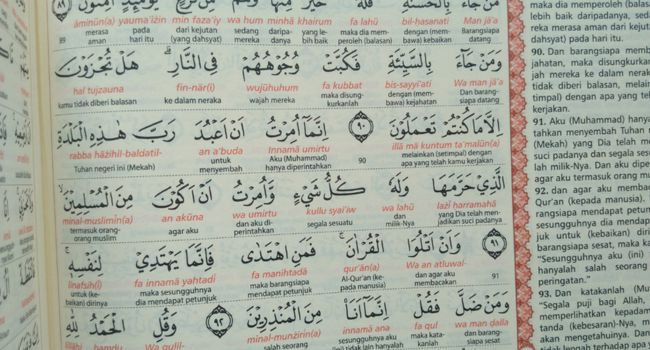 مَنْ جَاۤءَ بِالْحَسَنَةِ فَلَهٗ خَيْرٌ مِّنْهَا وَهُمْ مِّنْ فَزَعٍ يَّوْمَىِٕذٍ اٰمِنُوْنَ ٨٩
Man jā'a bil-ḥasanati fa lahū khairum minhā wa hum min faza'iy yauma'iżin āminūn(a)
Barangsiapa membawa dengan (membawa) kebaikan maka dia memperoleh (balasan) yang lebih baik daripadanya sedang mereka dari kejutan (yang dahsyat) pada hari itu merasa aman 89
وَمَنْ جَاۤءَ بِالسَّيِّئَةِ فَكُبَّتْ وُجُوْهُهُمْ فِى النَّارِۗ هَلْ تُجْزَوْنَ
Wa man jā'a bis-sayyi'ati fa kubbat wujūhuhum fin-nār(i) hal tujzauna
Dan barangsiapa datang dengan (membawa) kejahatan maka disungkurkanlah wajah mereka ke dalam neraka kamu tidak diberi balasan
اِلَّا مَا كُنْتُمْ تَعْمَلُوْنَ ٩٠ اِنَّمَآ اُمِرْتُ اَنْ اَعْبُدَ رَبَّ هٰذِهِ الْبَلْدَةِ
illā mā kuntum ta'malūn(a) Innamā umirtu an a'buda rabba hāżihil-baldatil-
melainkan (setimpal) dengan apa yang telah kamu kerjakan 90 Aku (Muhammad) hanya diperintahkan untuk menyembah Tuhan negeri ini (Mekah)
الَّذِيْ حَرَّمَهَا وَلَهٗ كُلُّ شَيْءٍ وَّاُمِرْتُ اَنْ اَكُوْنَ مِنَ الْمُسْلِمِيْنَۙ
lażī ḥarramahā wa lahū kullu syai'iw wa umirtu an akūna minal-muslimīn(a)
yang Dia telah menjadikan suci padanya dan milik-Nya segala sesuatu dan aku diperintahkan agar aku termasuk orang-orang muslim
٩١ وَاَنْ اَتْلُوَا الْقُرْاٰنَۚ فَمَنِ اهْتَدٰى فَاِنَّمَا يَهْتَدِيْ لِنَفْسِهٖۚ
Wa an atluwal- qur'ān(a) fa manihtadā fa innamā yahtadī linafsih(ī)
91 dan agar aku membacakan Al-Qur'an (kepada) maka barangsiapa mendapat petunjuk maka sesungguhnya dia mendapat petunjuk untuk (kebaikan) dirinya
وَمَنْ ضَلَّ فَقُلْ اِنَّمَآ اَنَا۠ مِنَ الْمُنْذِرِيْنَ ٩٢ وَقُلِ الْحَمْدُ لِلّٰهِ
wa man ḍalla fa qul innamā ana minal-munżirīn(a) Wa qulil- ḥamdu lillāhi
dan barangsiapa sesat maka katakanlah sesungguhnya aku tidak lain hanyalah salah seorang
maka dia memperoleh (balasan)
lebih baik daripadanya, sedang
reka merasa aman dari kejutan
90. Dan barangsiapa memb
jahatan, maka disungkurkan
jah mereka ke dalam neraka
91. Aku (Muhammad) hanya
tahkan menyembah Tuhan
(Mekah) yang Dia telah men
suci padanya dan segala sesu
lah milik-Nya. Dan aku dipe
agar aku termasuk orang mu
92. dan agar aku memba
Qur'an (kepada manusia).
rangsiapa mendapat petun
sesungguhnya dia mendapat
juk untuk (kebaikan) diri
barangsiapa sesat, maka ka
"Sesungguhnya aku (ini)
hanyalah salah seorang
peringatan."
93. Dan katakanlah (Mu
"Segala puji bagi Allah,
memperlihatkan kepadam
tanda (kebesaran)-Nya, m
akan mengetahuinya. Dan